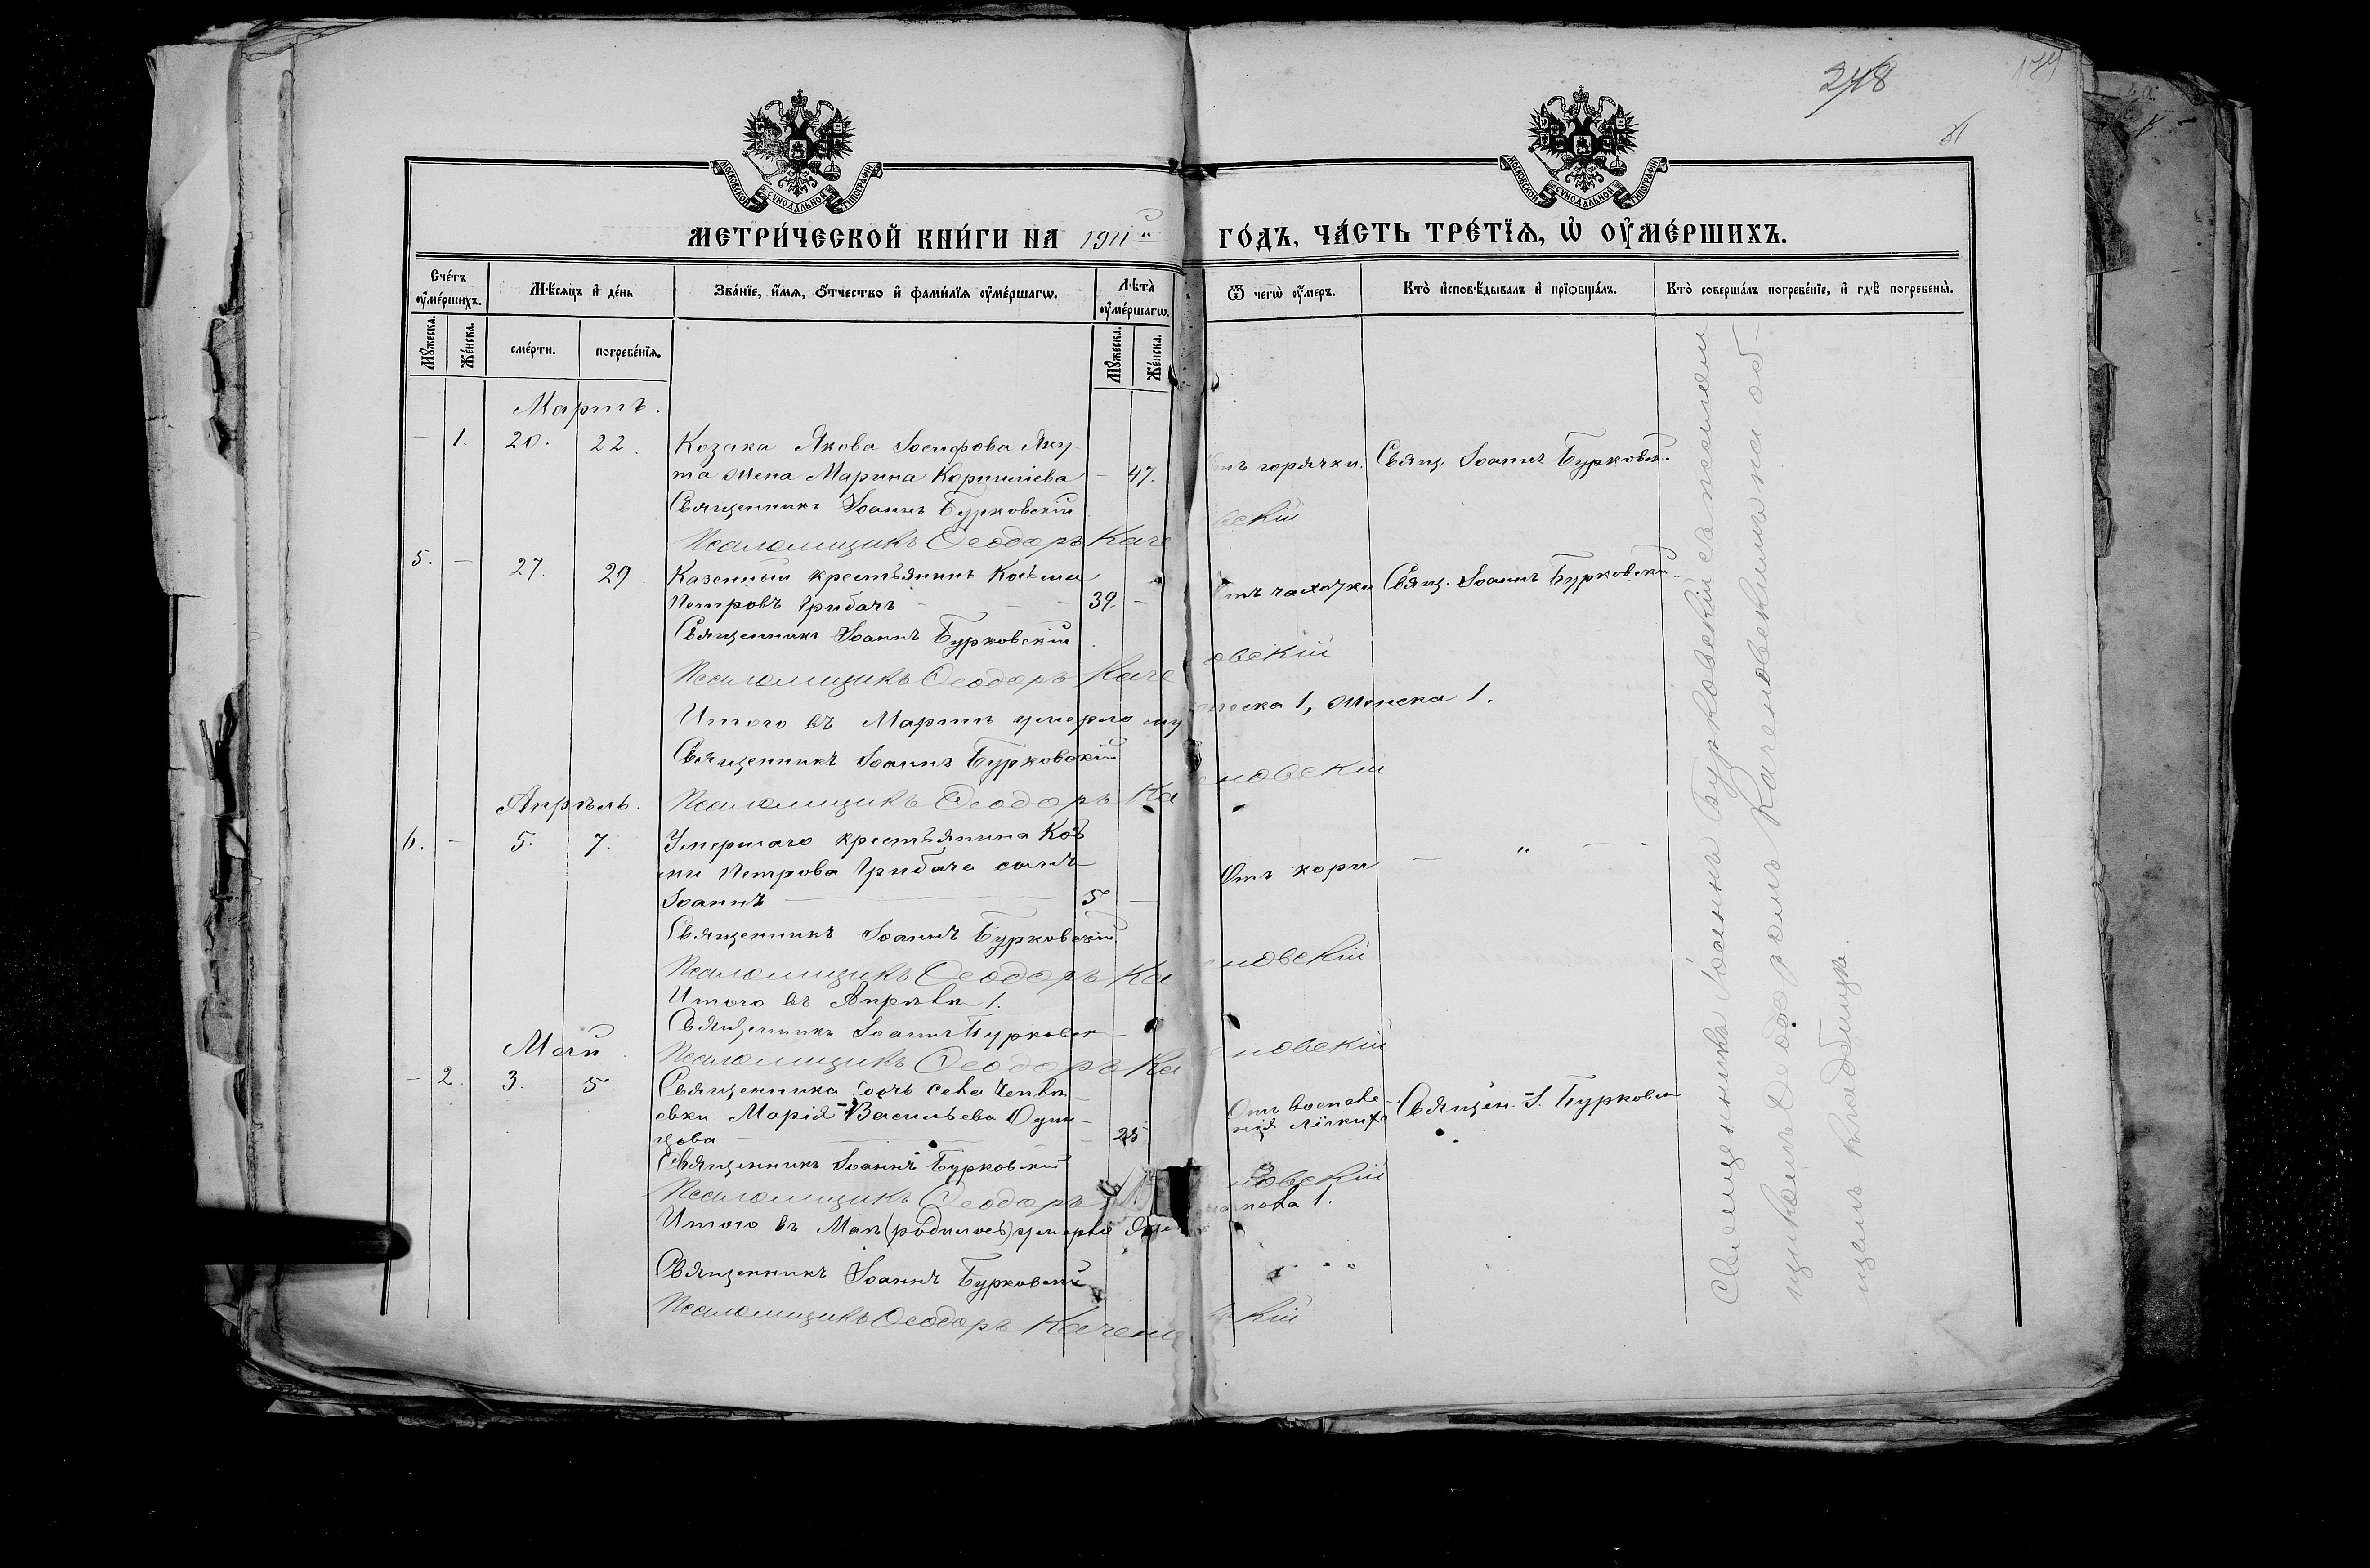 248
МОСКОВСКОЙ СУНОДАЛЬНОЙ ТИПОГРАФІИ
МОСКОВСКОЙ СУНОДАЛЬНОЙ ТИПОГРАФІИ
МЕТРИ́ЧЕСКОЙ КНИ́ГИ НА 1911й ГО́ДЪ, ЧА́СТЬ ТРЕ́ТЇѦ, Ѡ҆ ОУ҆МЕ́РШИХЪ.
Сче́тъ оу҆ме́ршихъ.
Мꙋ́жеска.
Же́нска.
Мѣ́сяцъ и҆ де́нь
сме́рти.
погребе́нїѧ.
Зва́нїе, и҆́мѧ, ѻ҆́тчество и҆ фами́лїѧ оу҆ме́ршагѡ.
Лѣта̀ оу҆ме́ршагѡ.
Мꙋ́жеска.
Же́нска.
Ѿ чегѡ̀ оу҆́меръ.
Кто̀ и҆сповѣ́дывалъ и҆ прїѡбща́лъ.
Кто̀ соверша́лъ погребе́нїе, и҆ гдѣ̀ погребены̀.
Мартъ.
— 1. 20. 22. Козака Якова Іосифова Яку-
та жена Марина Корнилієва — 47. Отъ горячки. Свящ. Іоаннъ Бурковск.
Священникъ Іоаннъ Бурковскій
Псаломщикъ Ѳеодоръ Каче вскій
5. — 27. 29. Казенный крестьянинъ Косьма
Петровъ Грибачъ 39. — Отъ чахотки Свящ. Іоаннъ Бурковскій
Священникъ Іоаннъ Бурковскій
Псаломщикъ Ѳеодоръ Каче овскій
Итого въ Мартѣ умерло мужеска 1, женска 1.
Священникъ Іоаннъ Бурковскій
Апрѣль. Псаломщикъ Ѳеодоръ Ка новскій
6. — 5. 7. Умершаго крестьянина Кось
мы Петрова Грибача сынъ
Іоаннъ 5 — Отъ кори — " —
Священникъ Іоаннъ Бурковскій
Псаломщикъ Ѳеодоръ Ка новскій
Итого въ Апрѣлѣ 1.
Священникъ Іоаннъ Бурковск
Май. Псаломщикъ Ѳеодоръ Ка новскій
— 2. 3. 5. Священника дочь села
евки Марія Васильева
цова 25 Отъ воспале-
нія лёгкихъ Священ. І. Бурковск
Священникъ Іоаннъ Бурковскій
Псаломщикъ Ѳеодоръ новскій
Итого въ Маѣ (родилось) умерло 1.
Священникъ Іоаннъ Бурковскій
Псаломщикъ Ѳеодоръ Качено вскій
Священникъ Іоаннъ Бурковскій съ псалом
щикомъ Ѳеодоромъ Каченовскимъ на об-
щемъ кладбищѣ.